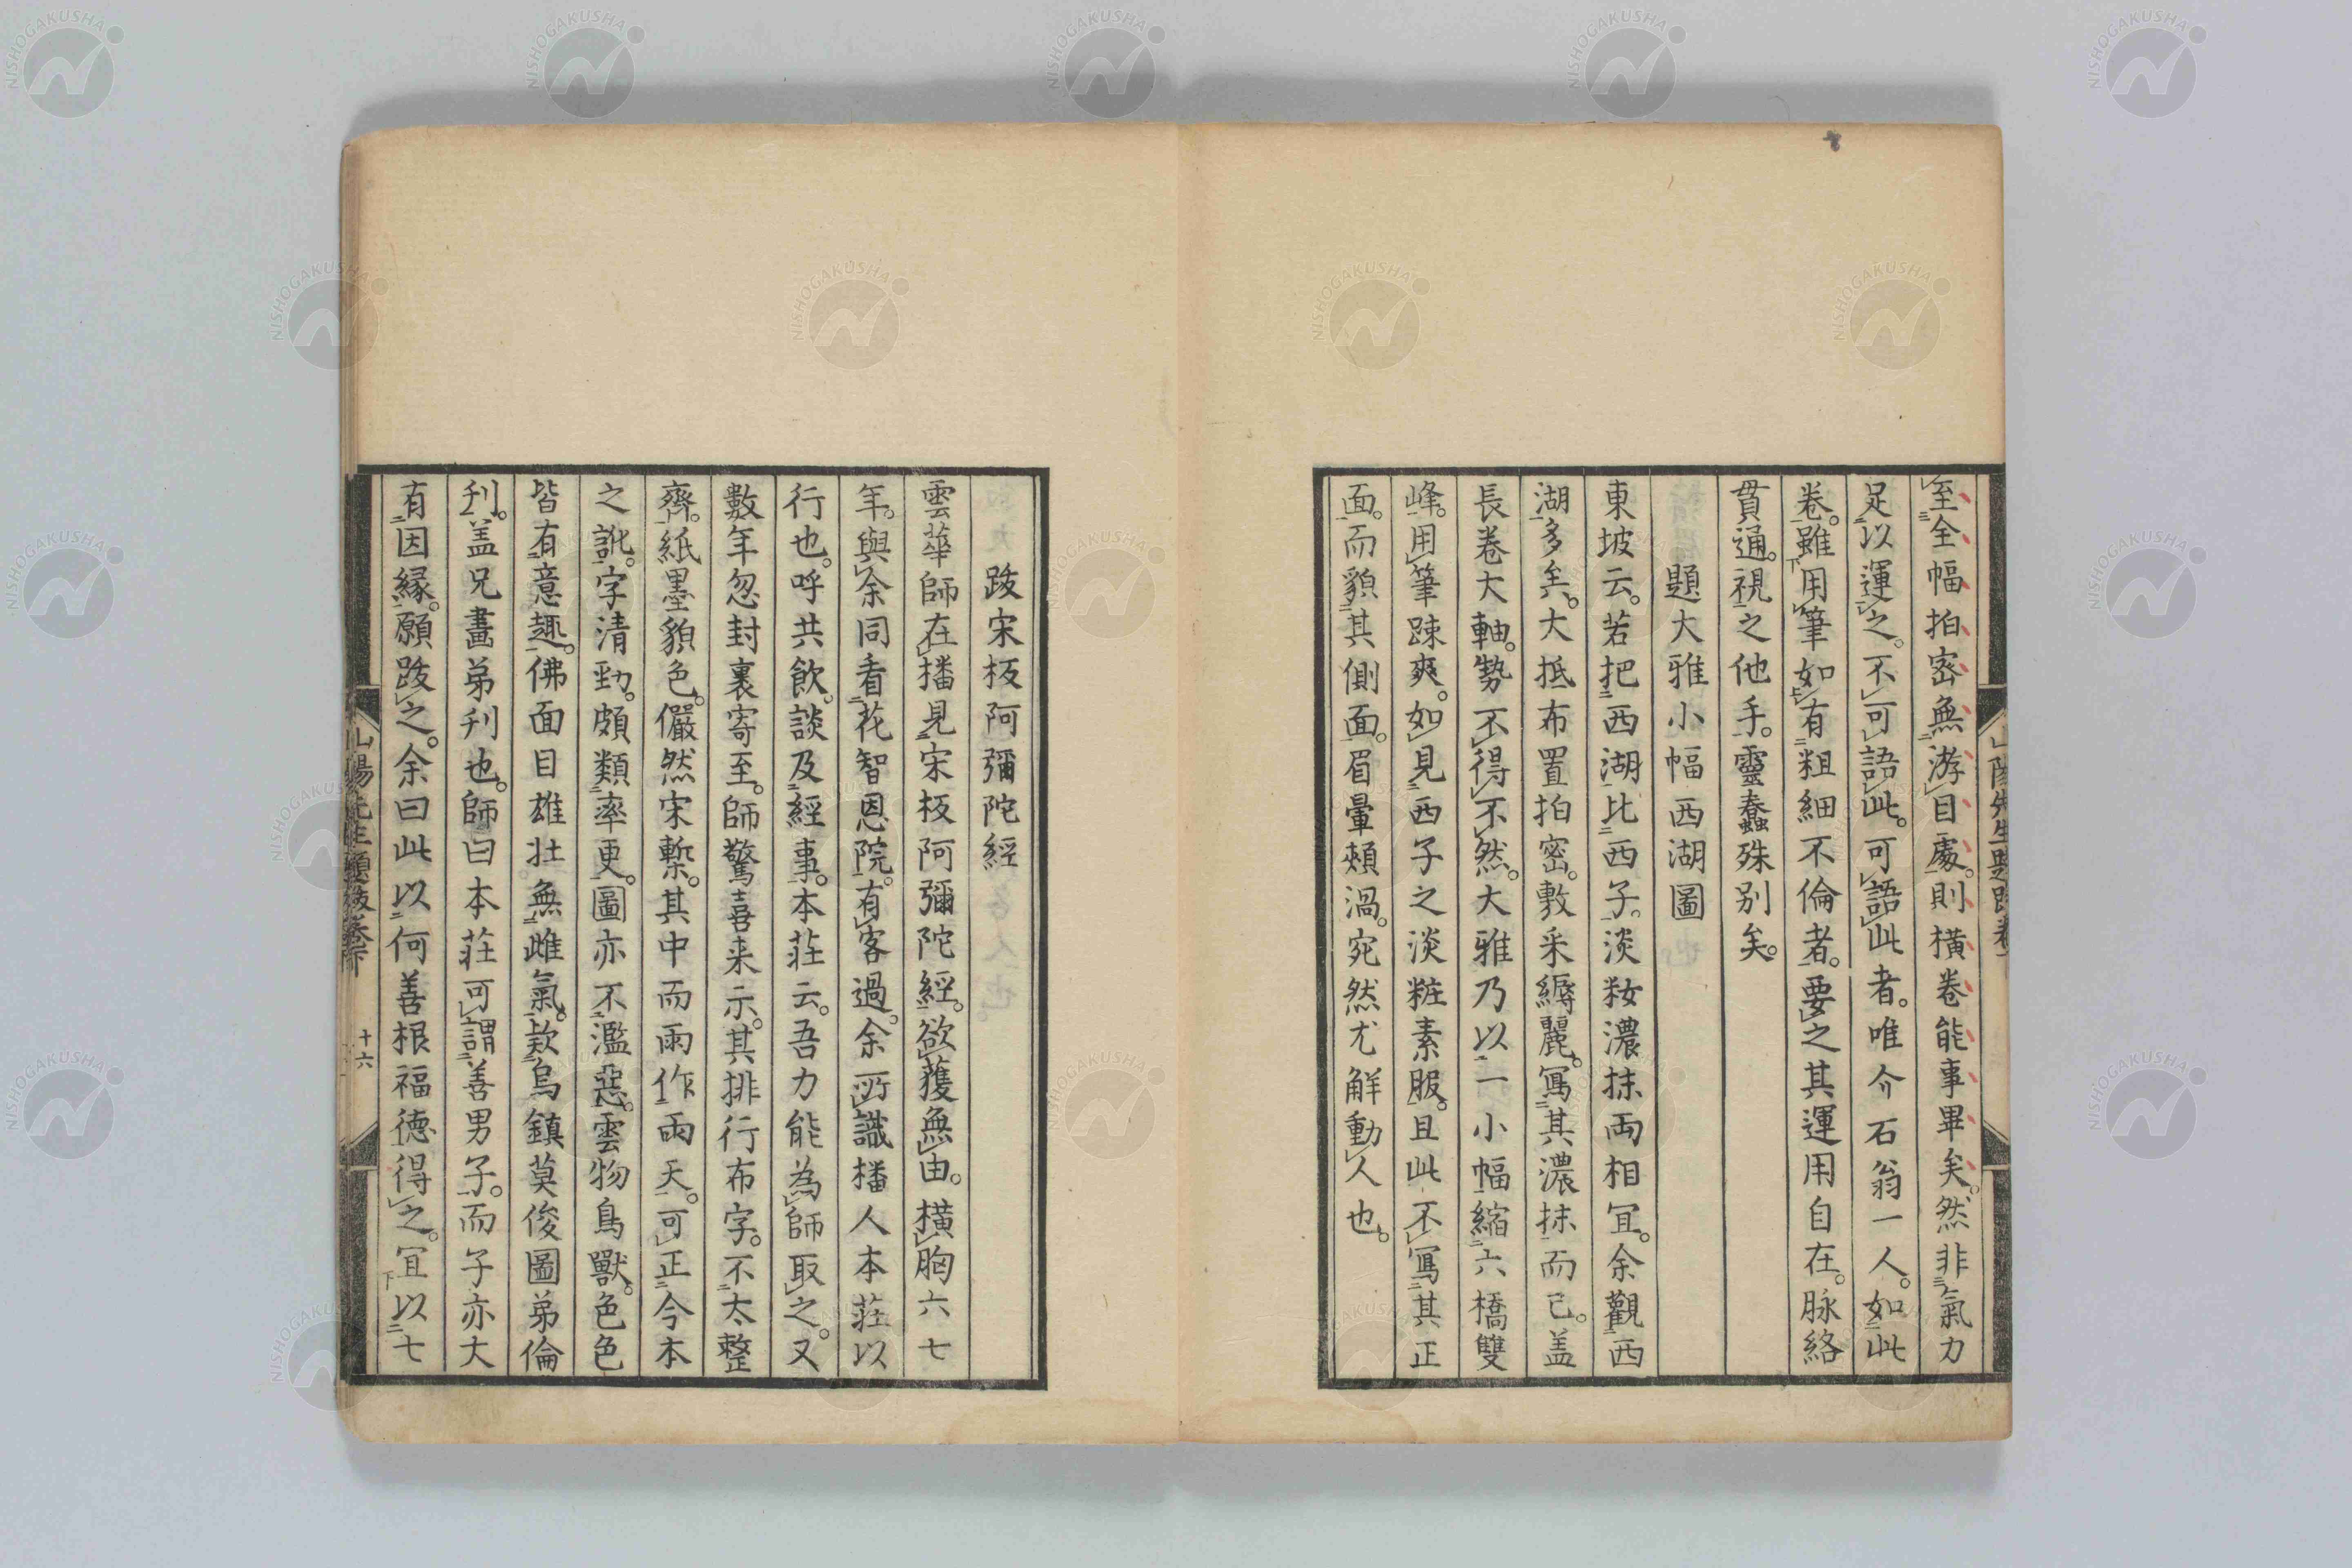 至全幅拍密無游目處。則橫卷能事畢矣。然非氣力
足以運之。不可語此。可語此者。唯介石翁一人。如此
卷。雖用筆如有粗細不倫者。要之其運用自在。脉絡
貫通。視之他手。靈蠢殊別矣。
題大雅小幅西湖圖
東坡云。若把西湖比西子。淡妝濃抹両相冝。余觀西
湖多矣。大抵布置拍密。敷采縟麗。寫其濃抹而已。盖
長卷大軸。勢不得不然。大雅乃以一小幅縮六橋雙
峰。用筆踈爽。如見西子之淡粧素服。且此不寫其正
面。而貌其側面。眉暈頰渦。宛然尤解動人也。
山陽先生題跋卷下
跋宋板阿彌陀經
雲華師在播見宋板阿彌陀經。欲獲無由。橫胸六七
年。與余同看花智恩院。有客過。余所識播人本莊以
行也。呼共飲。談及經事。本莊云。吾力能為師取之。又
數年忽封裹寄至。師驚喜来示。其排行布字。不太整
齊。紙墨貌色。儼然宋槧。其中而雨作両天。可正今本
之訛。字清勁。頗類率更。圖亦不濫惡。雲物鳥獸。色色
皆有意趣。佛面目雄壮。無雌氣。欵烏鎮莫俊圖弟倫
刊。盖兄畫弟刊也。師曰本莊可謂善男子。而子亦大
有因縁。願跋之。余曰此以何善根福徳得之。冝以七
山陽先生題跋卷下
十六
NISHOGAKUSHA